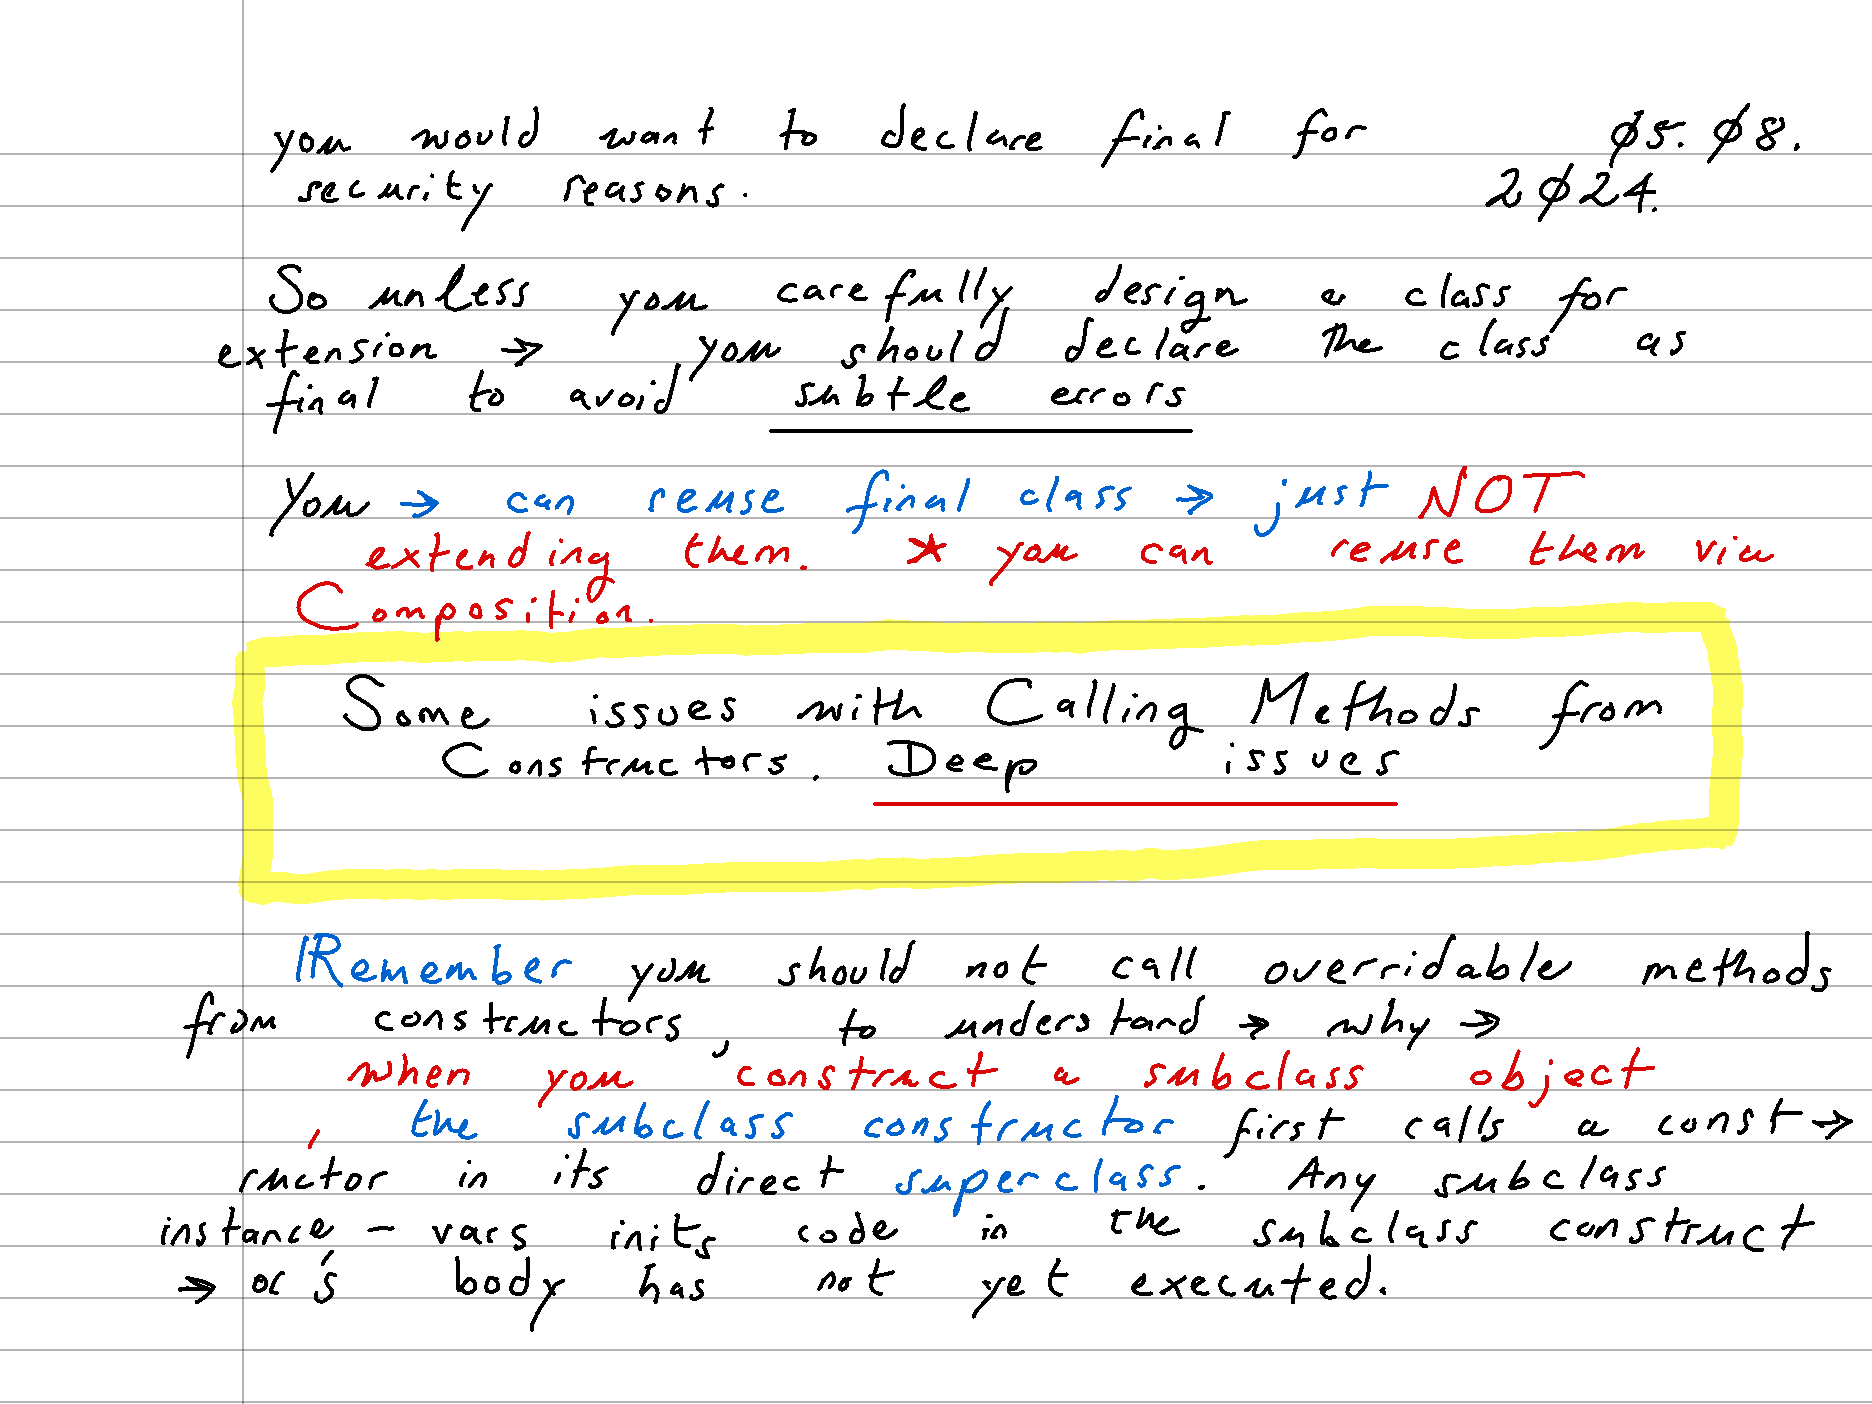 you would want to declare final for Ø5. Ø8.
security reasons. 2Ø24.
So unless you carefully design a class for
extension → you should declare the class as
final to avoid subtle errors
You → can reuse final class → just NOT
extending them. * you can reuse them via
Composition.
Some issues with Calling Methods from
Constructors. Deep issues
Remember you should not call overridable methods
from constructors, to understand → why →
when you construct a subclass object
, the subclass constructor first calls a const →
ructor in its direct superclass. Any subclass
instance - vars inits code in the subclass construct
→ or's body has not yet executed.